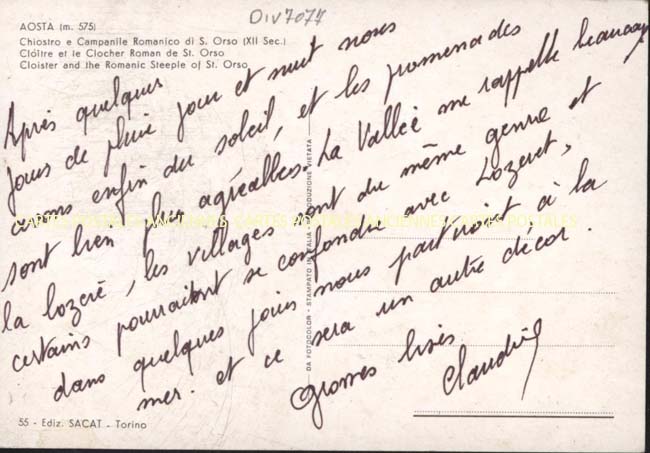 Div7077
AOSTA (m. 575)
Chiostro e Campanile Romanico di S. Orso (XII Sec.)
Cloître et le Clocher Roman de St. Orso
Cloister and the Romanic Steeple of St. Orso
Après quelques
jours de pluie jour et nuit nous
avons enfin du soleil, et les promenades
sont bien plus agréables. La Vallée me rappelle beaucoup
la Lozère, les villages sont du même genre et
certains pourraient se confondre avec Lozeret,
dans quelques jours nous partiront à la
mer. et ce sera un autre décor.
Grosses bises
CARTES POSTALES ANCIENNES CARTES POSTALES ANCIENNES CARTES POSTALES
DA FOTOCOLOR - STAMPATO IN ITALIA - RIPRODUZIONE VIETATA
55 - Ediz. SACAT - Torino